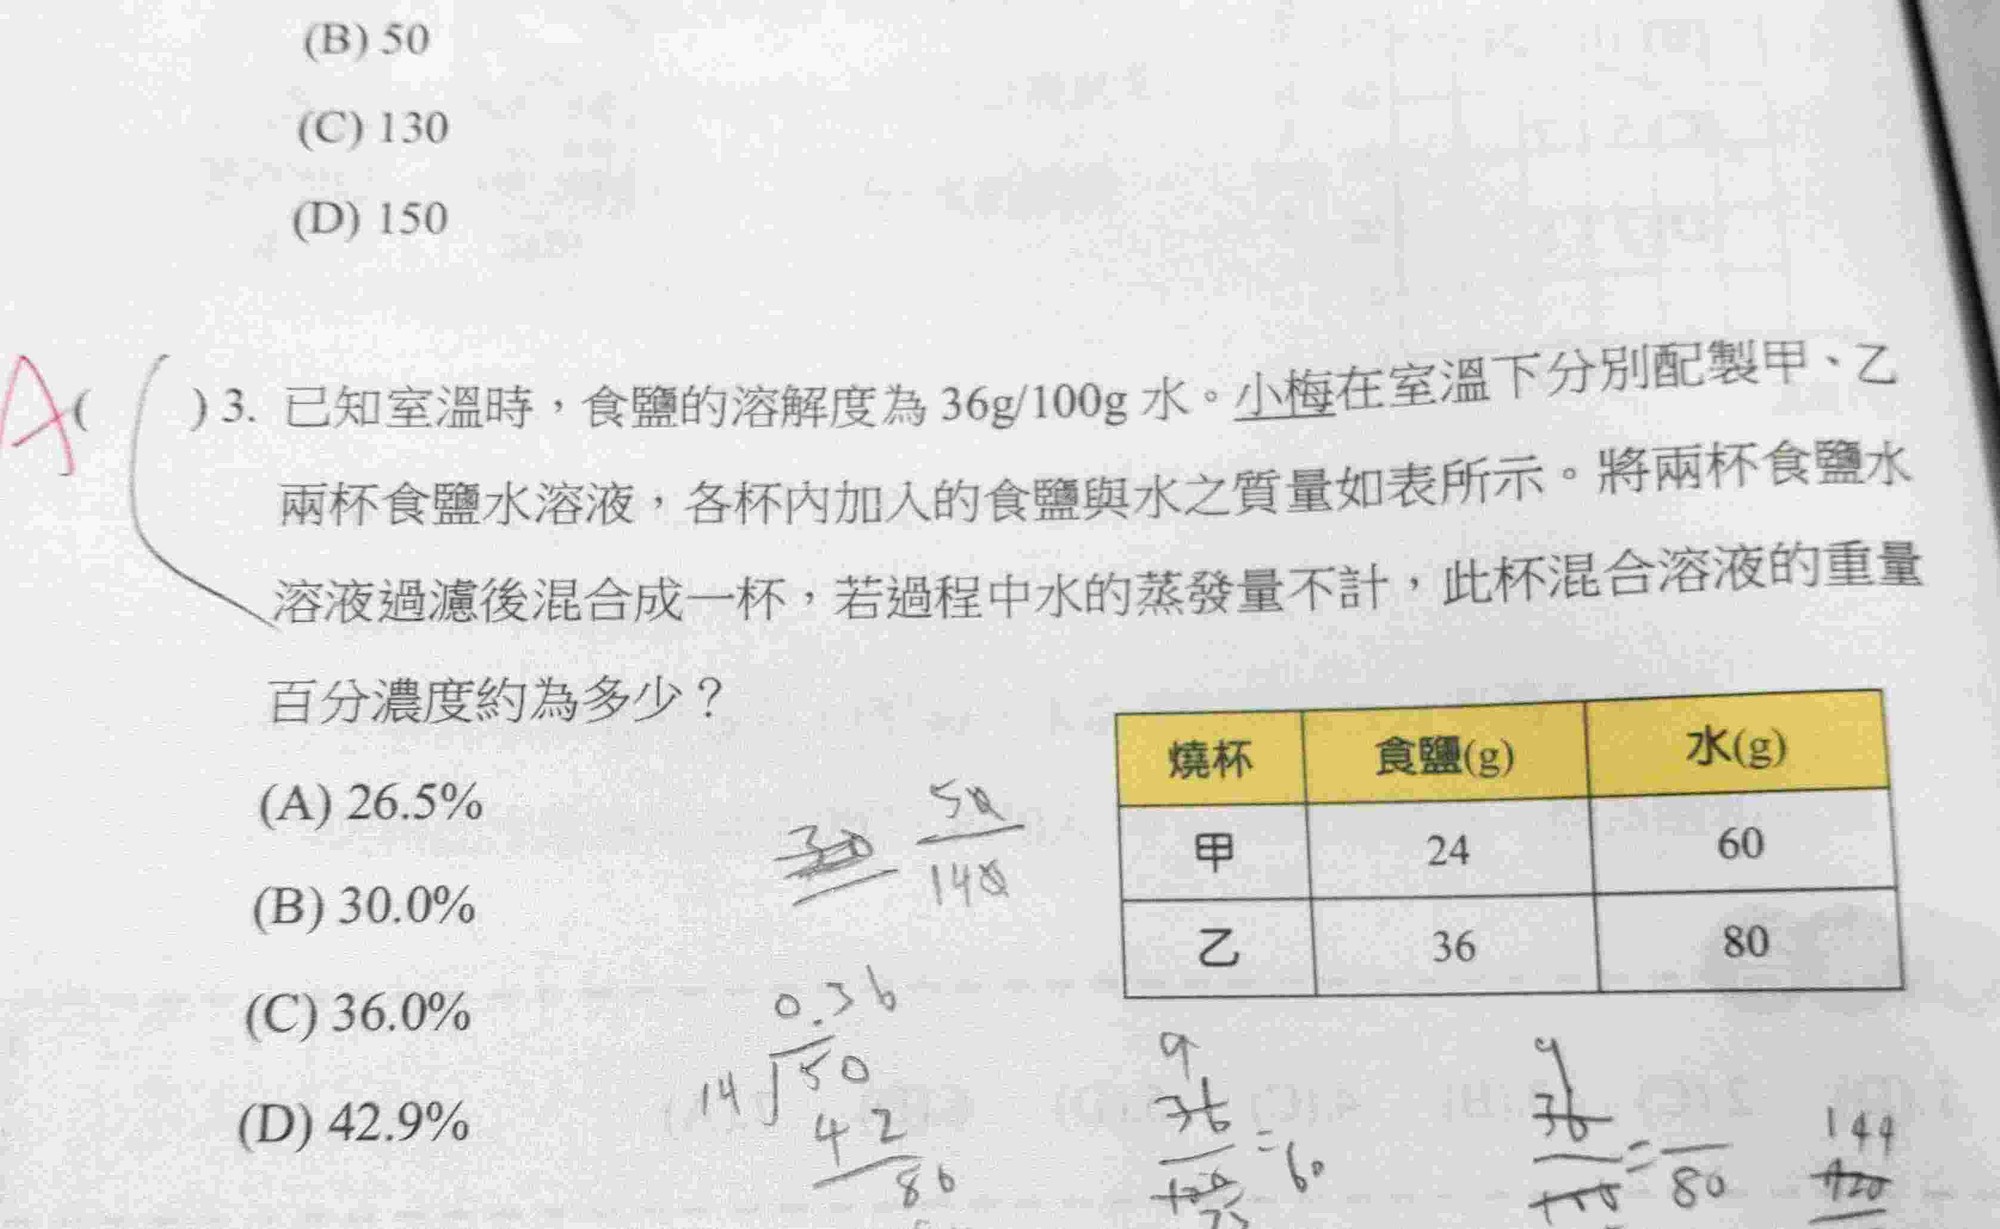 (B) 50
(C) 130
(D) 150
A
( ) 3. 已知室溫時，食鹽的溶解度為 36g/100g 水。小梅在室溫下分別配製甲、乙
兩杯食鹽水溶液，各杯內加入的食鹽與水之質量如表所示。將兩杯食鹽水
溶液過濾後混合成一杯，若過程中水的蒸發量不計，此杯混合溶液的重量
百分濃度約為多少？
燒杯 食鹽(g) 水(g)
甲 24 60
乙 36 80
(A) 26.5%
(B) 30.0%
(C) 36.0%
(D) 42.9%
50
140
0.36
14 50
42
80
9
36
= 60
9
36
= 80
144